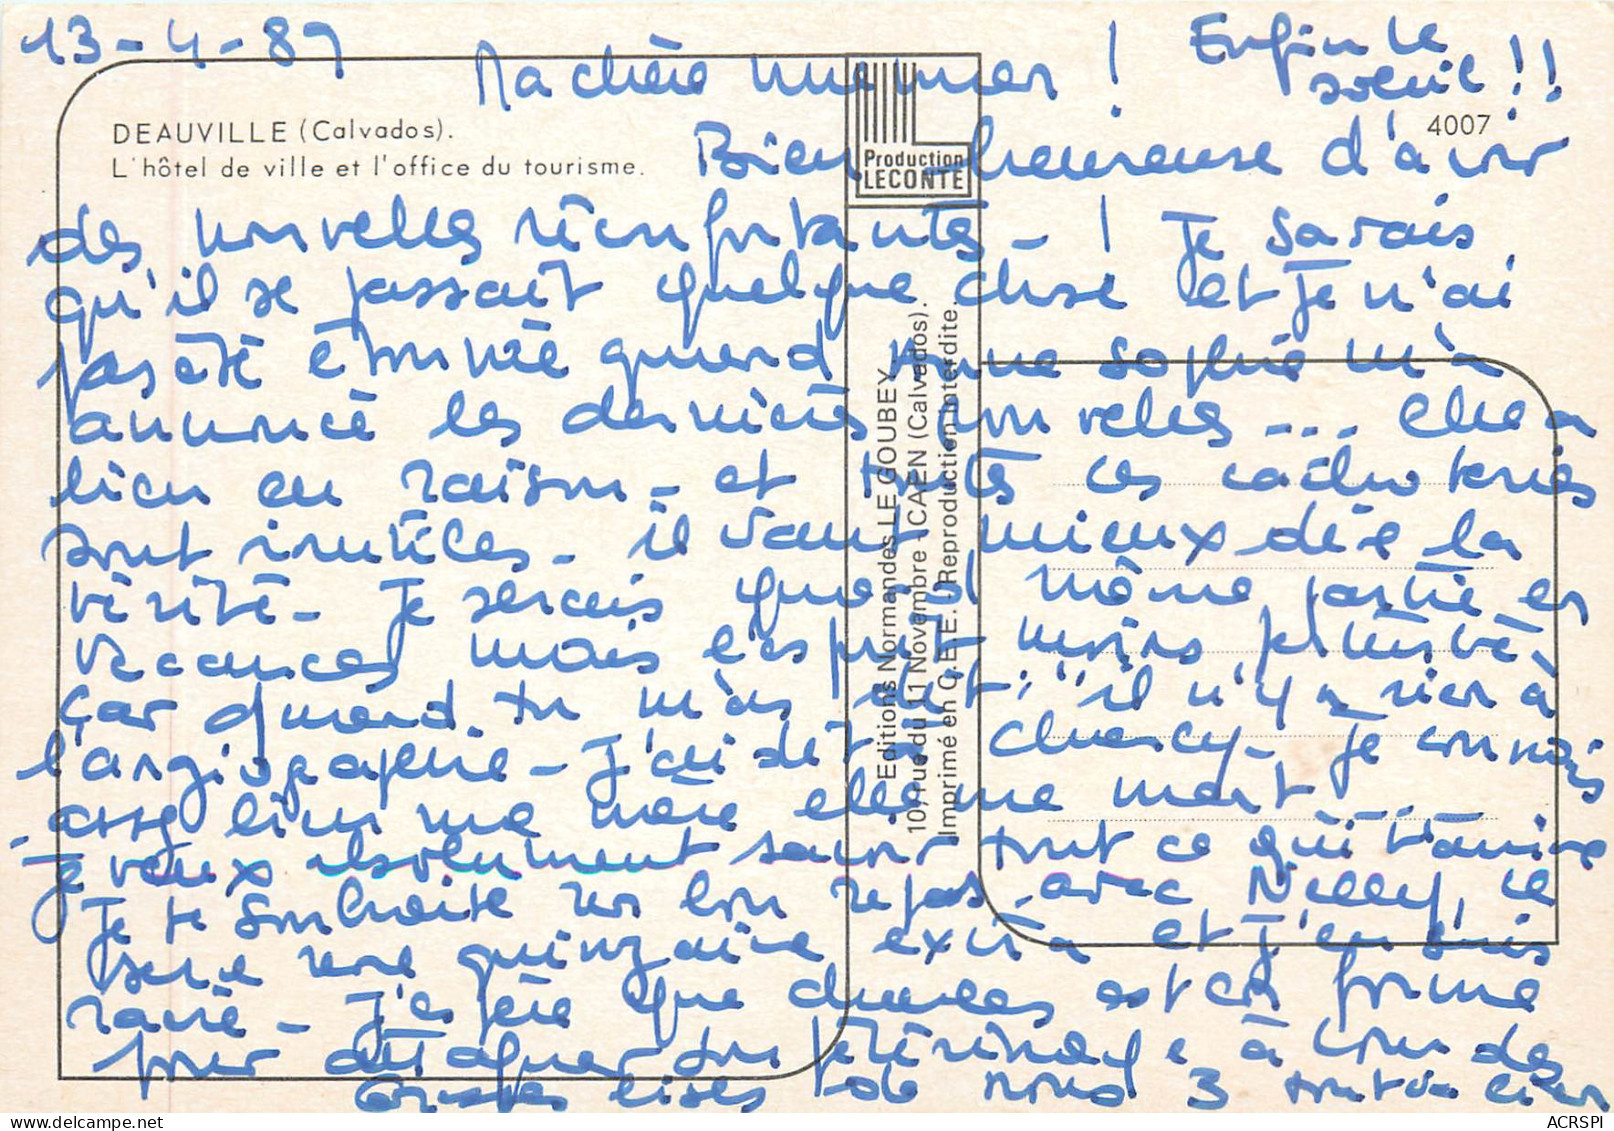 13-4-89
Ma chère mumner !
Enfin le
soleil !!
DEAUVILLE (Calvados).
L'hôtel de ville et l'office du tourisme.
4007
Production
LECONTE
Bien heureuse d'avoir
des nouvelles réconfortantes - ! Je savais
qu'il se passait quelque chose et je n'ai
pas été étonnée quand Anne Sophie m'a
annoncé les dernières nouvelles ... elle a
bien eu raison - et toutes ces cachotteries
sont inutiles - il vaut mieux dire la
vérité - Je serais quand même partie en
vacances mais l'esprit moins
Car quand tu m'as dit : "il n'y a rien à
l'angiographie - J'ai dit à Chancy - Je connais
assez bien ma mère elle me ment" ...
je veux absolument savoir tout ce qui t'arrive
Je te souhaite un bon repos avec Nelly, ce
sera une quinzaine extra et j'en suis
ravie - J'espère que Charles est en forme
pour attaquer son pélérinage à Lourdes
Grosses bises de nous 3 tout va bien
Editions Normandes LE GOUBEY
10, rue du 11 Novembre - CAEN (Calvados).
Imprimé en C.E.E. Reproduction Interdite.
ACRSPI